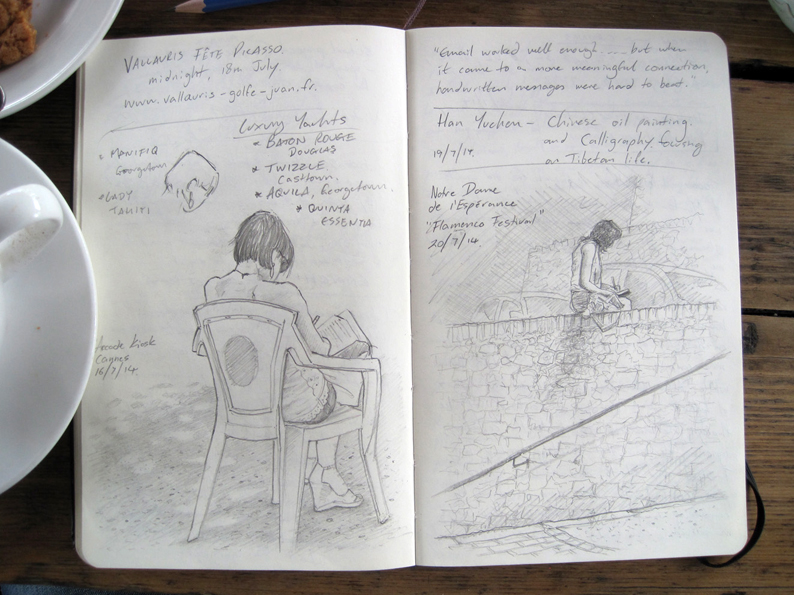 VALLAURIS FÊTE PICASSO.
midnight, 18th July
www.vallauris-golfe-juan.fr.
Luxury Yachts
* MANIFIQ
Georgetown
* LADY
TAHITI
* BATON ROUGE
DOUGLAS
* TWIZZLE,
* AQUILA, Georgetown.
* QUINTA
ESSENTIA
Kiosk
Cagnes
16/7/14.
"Email worked well enough.... but when
it came to a more meaningful connection,
handwritten messages were hard to beat."
Han Yuchen - Chinese oil painting.
and Calligraphy focusing
19/7/14. on Tibetan life.
Notre Dame
de l'Espérance
"Flamenco Festival"
20/7/14.